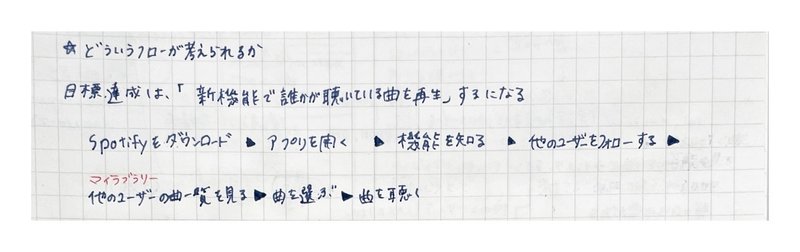 ☆ どういうフローが考えられるか
目標達成は、「新機能で誰かが聴いている曲を再生」するになる
Spotifyをダウンロード ▶ アプリを開く ▶ 機能を知る ▶ 他のユーザーをフォローする ▶
マイラブラリー
他のユーザーの曲一覧を見る ▶ 曲を選ぶ ▶ 曲を聴く